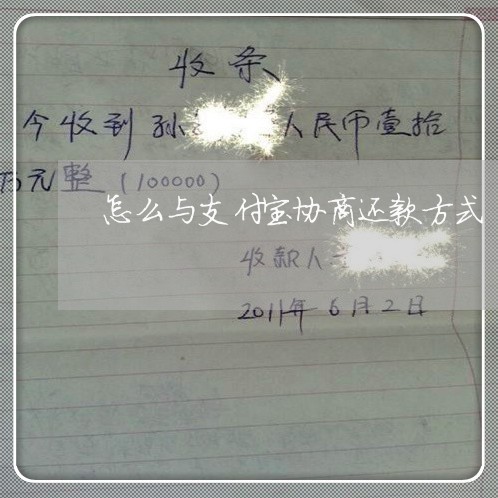 收条
今收到孙 人民币壹拾
万元整(100000)
怎么与支付宝协商还款方式
收款人
2011年6月2日